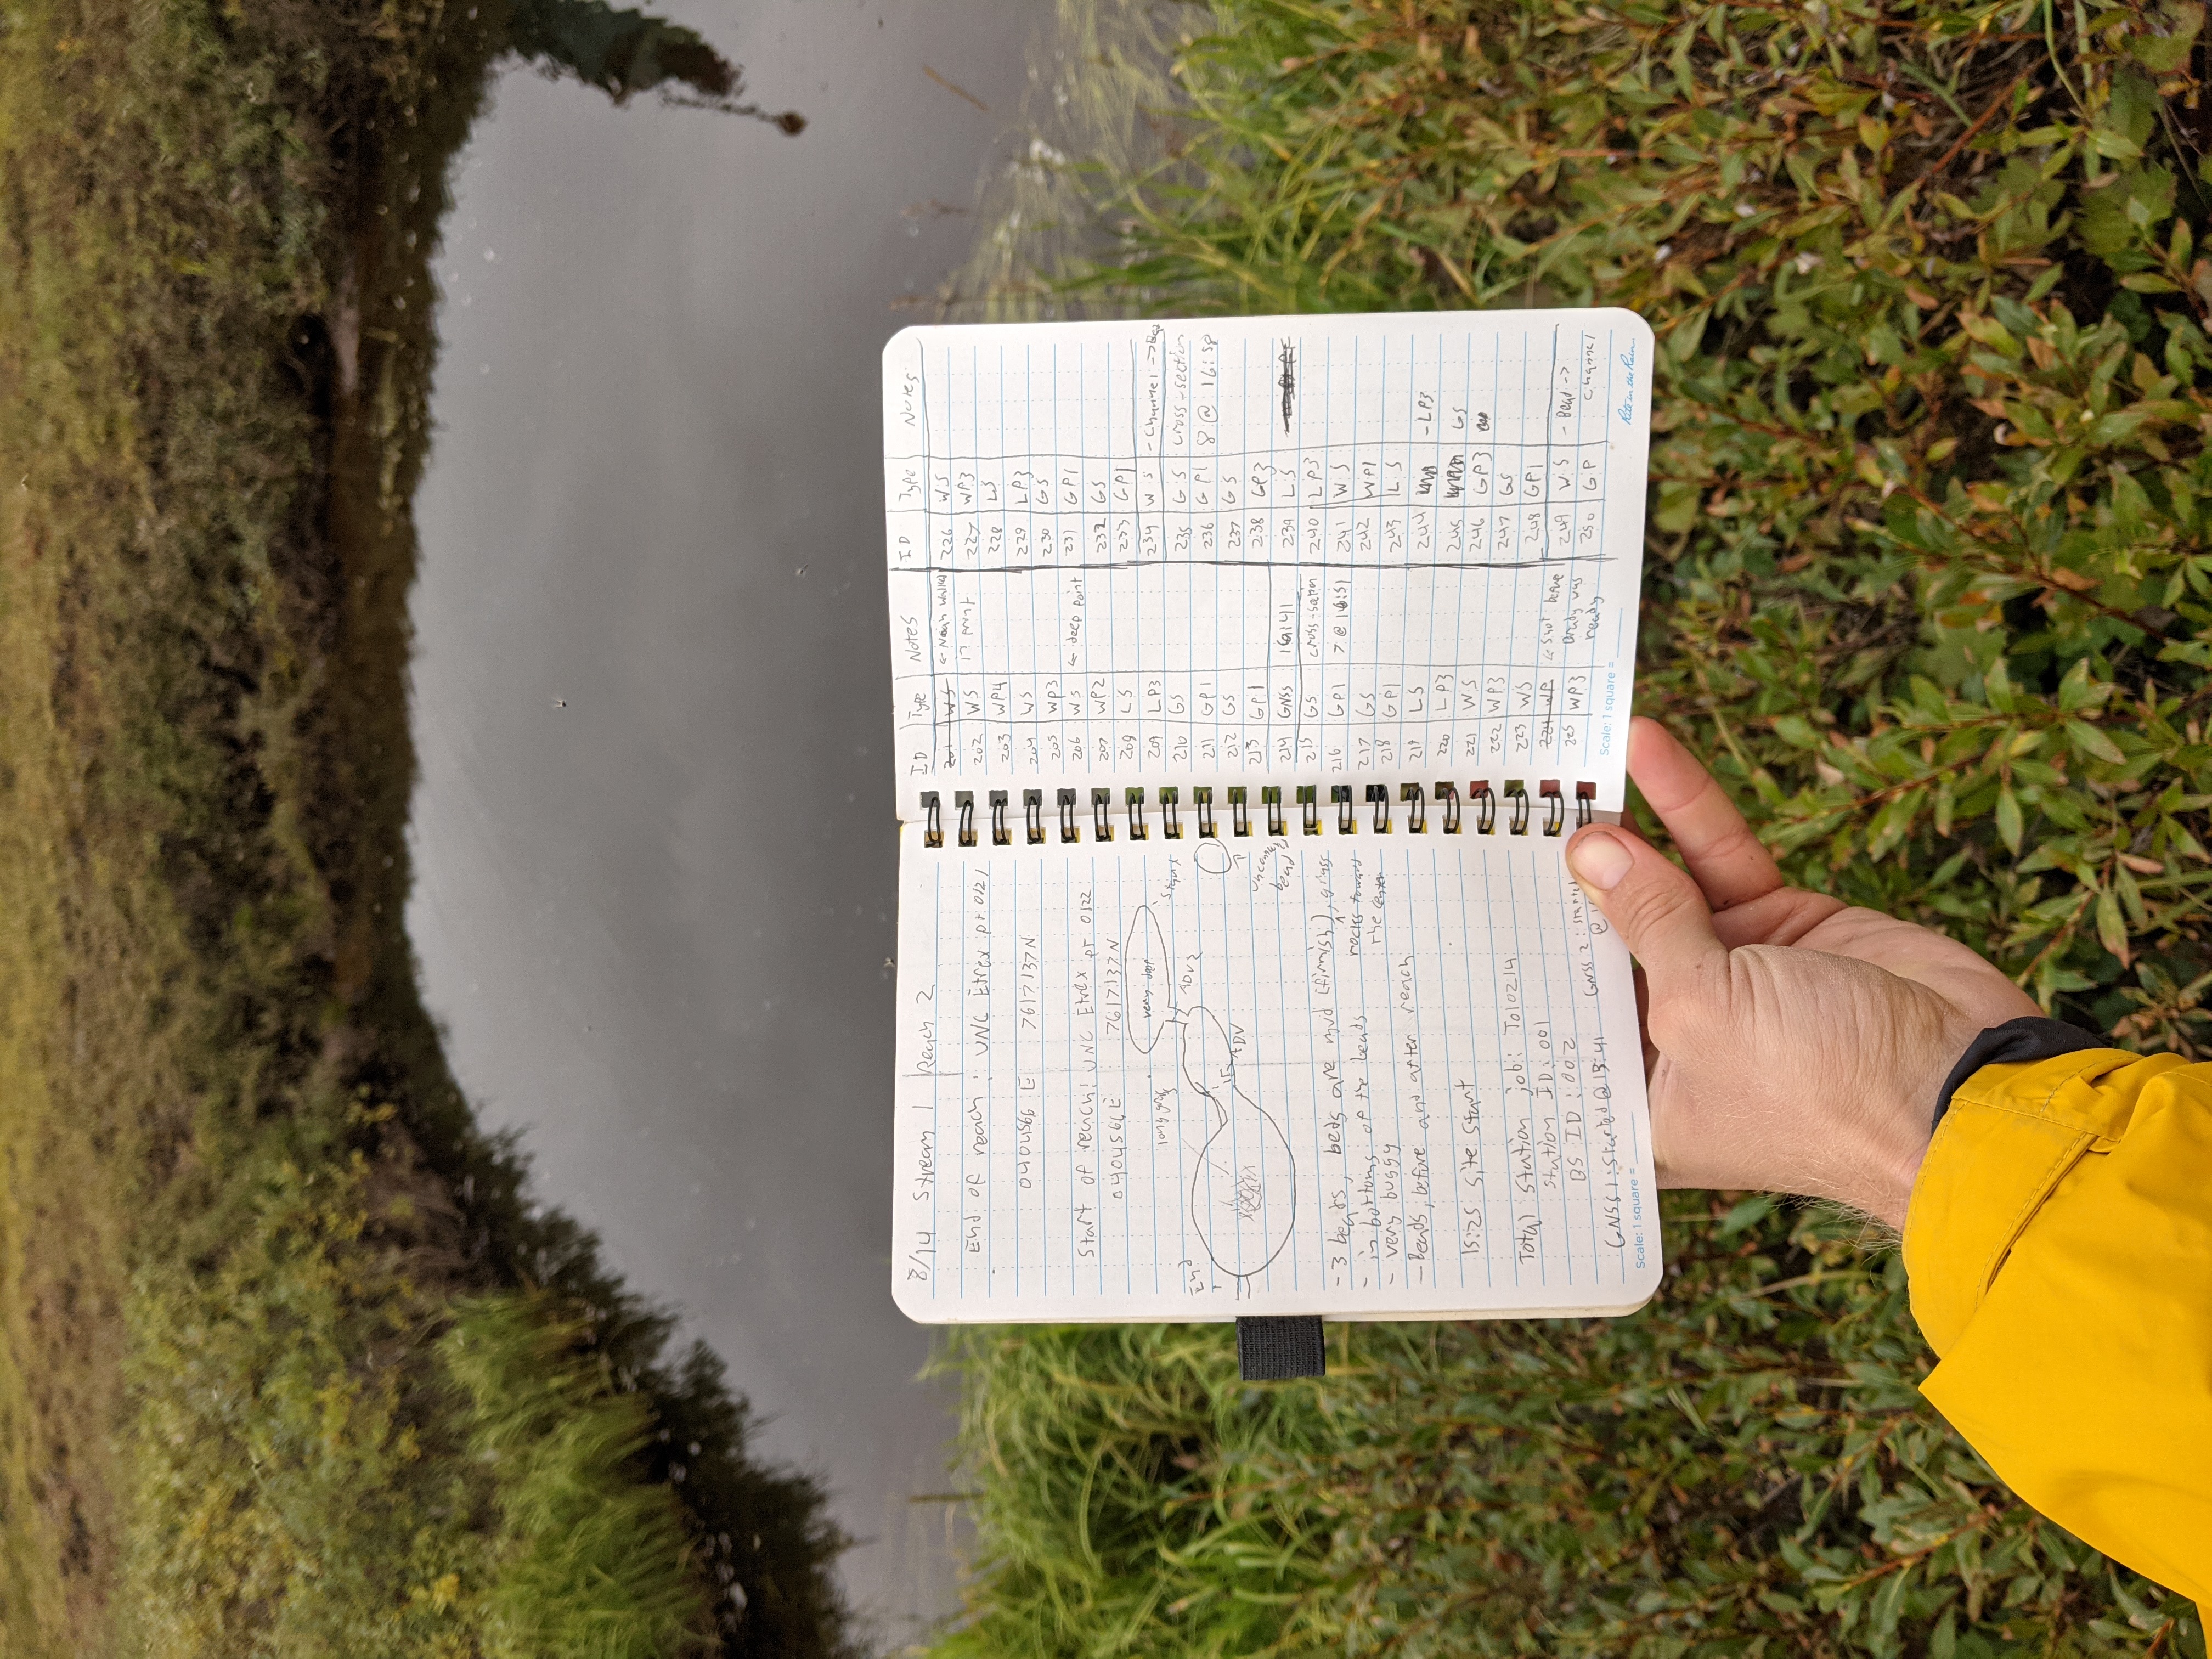 8/14 Stream 1 Reach 2
End of reach: UNC Etrex pt 0121
0404566 E 7617137N
Start of reach: UNC Etrex pt 0122
0404566E 7617137N
very deep
long grass
Start
End
ADV2
ADV
bead
- 3 beads, beds are mud (firmish), grass
- in bottoms of the beads rocks toward
the center
- very buggy
- Beads, before and after reach
15:25 site start
Total station job: T010214
station ID: 001
BS ID: 002
GNSS 1: Started @ 15:41 GNSS 2: started
@
Scale: 1 square =
ID Type Notes
201 WS ← Noah walked
202 WS in point
203 WP4
204 WS
205 WP3
206 WS ← deep point
207 WP2
209 LS
209 LP3
210 GS
211 GP1
212 GS
213 GP1
214 GNSS 16:41
215 GS cross-section
216 GP1 7 @ 16:51
217 GS
218 GP1
219 LS
220 LP3
221 WS
222 WP3
223 WS
224 WP ← Shot before
225 WP3 Brady was
ready
Scale: 1 square =
ID Type Notes
226 WS
227 WP3
228 LS
229 LP3
230 GS
231 GP1
232 GS
233 GP1
234 WS - Channel → Bead
235 GS cross-section
236 GP1 8 @ 16:58
237 GS
238 GP3
239 LS
240 LP3
241 WS
242 WP1
243 LS
244 - LP3
245 GS
246 GP3
247 GS
248 GP1
249 WS - Bead →
250 GP channel
Rite in the Rain